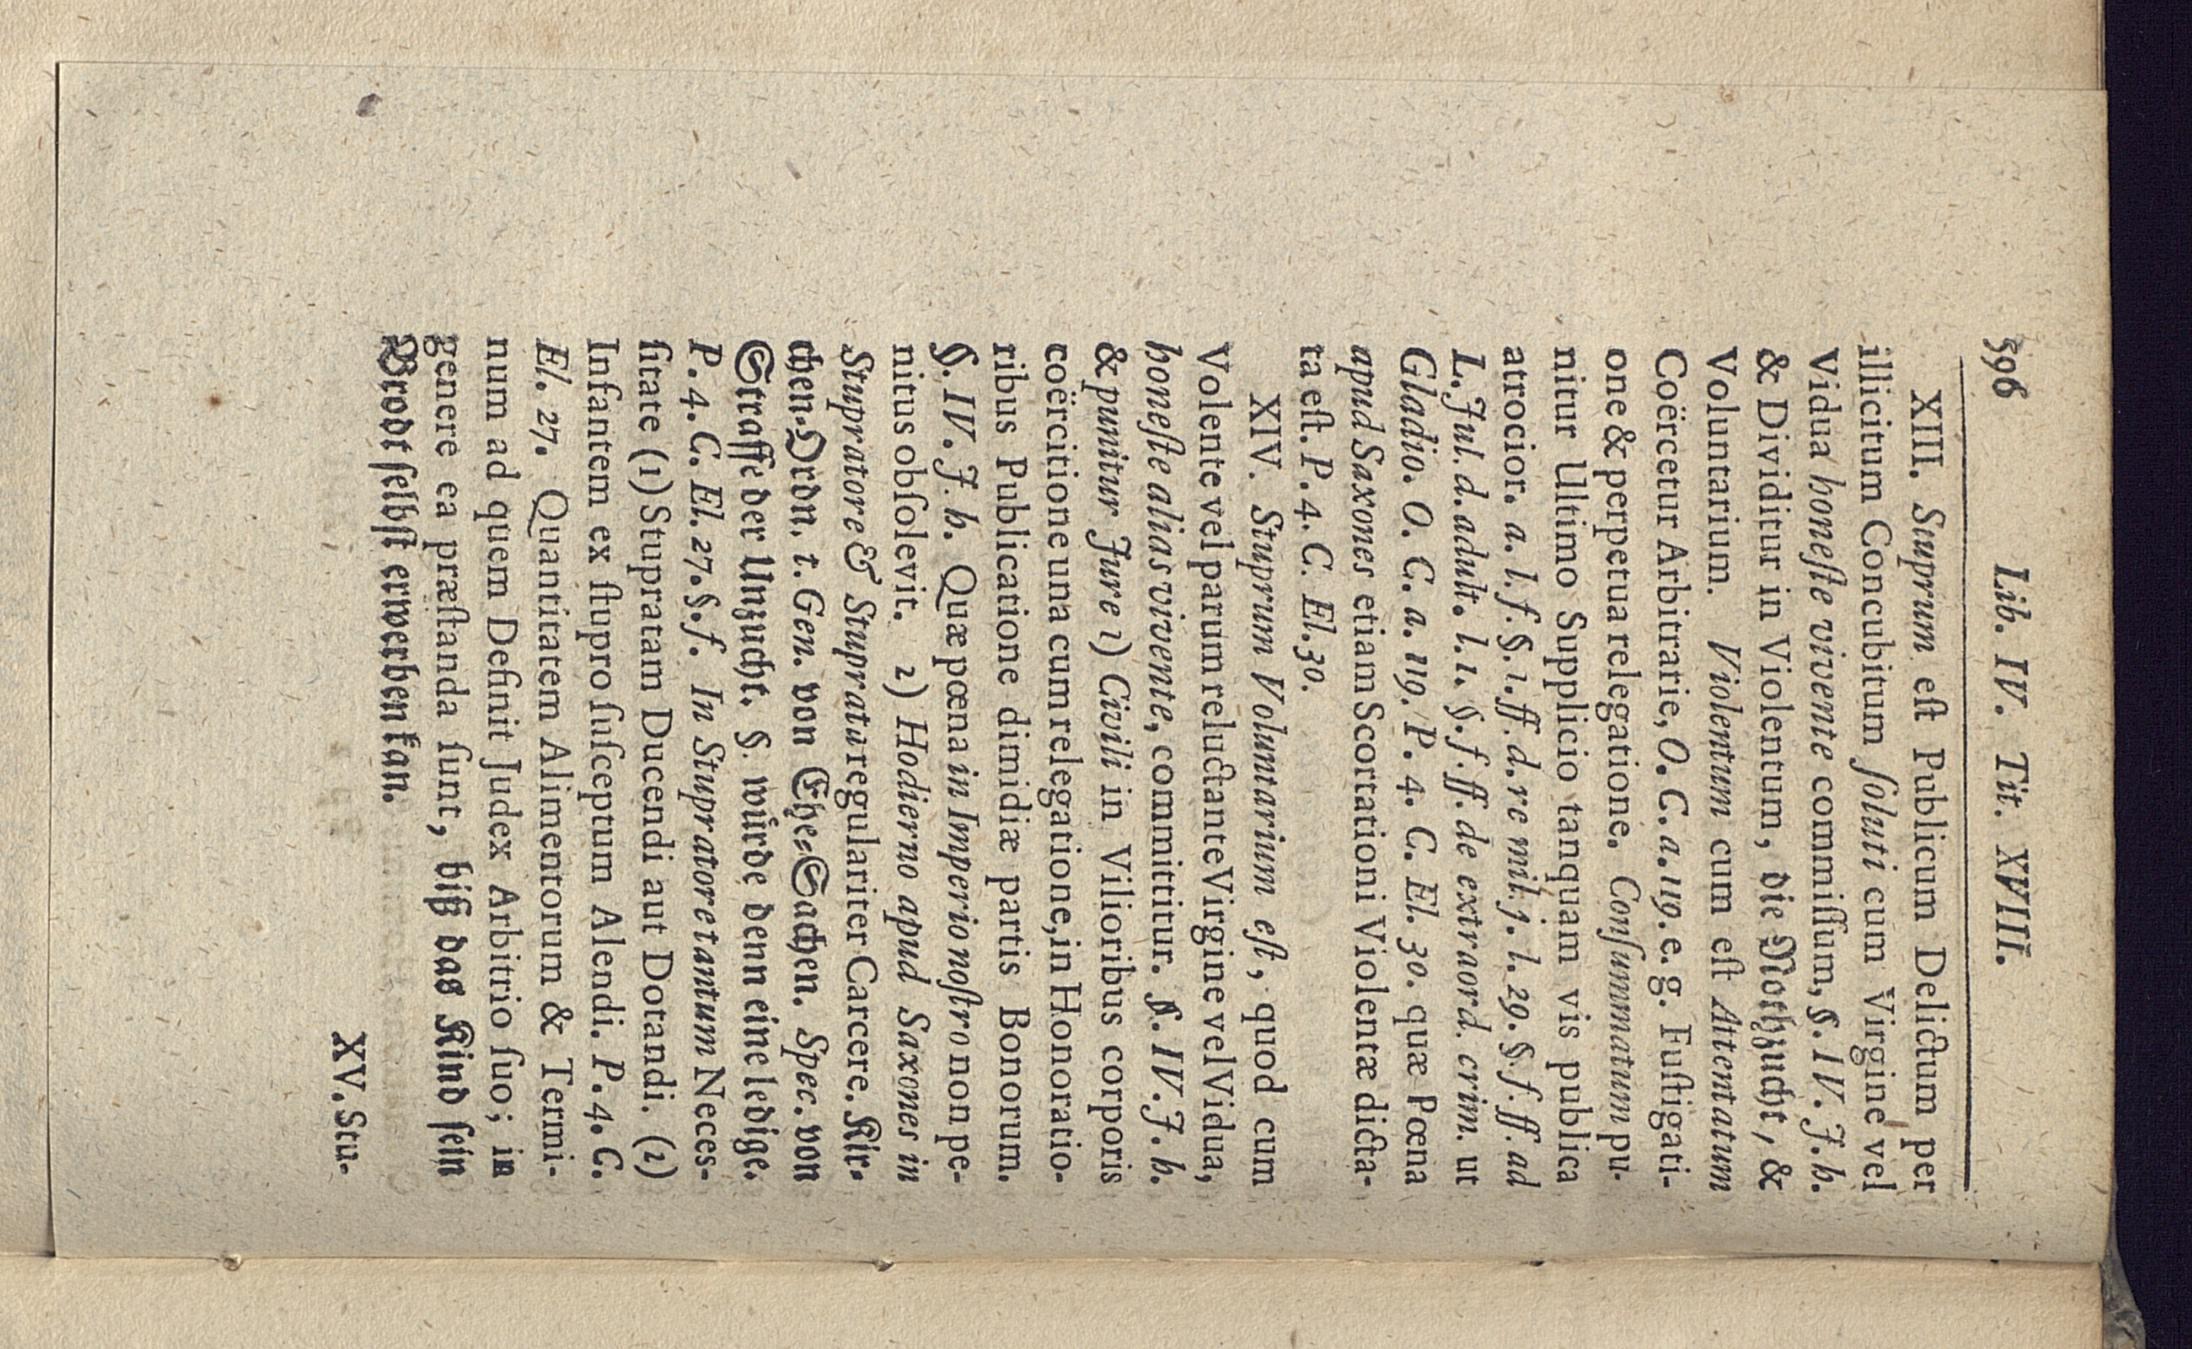 396 Lib. IV. Tit. XVIII.
XIII. Stuprum eſt Publicum Delictum per
illicitum Concubitum ſoluti cum Virgine vel
Vidua honeſte vivente commiſſum, §. IV. J. h.
& Dividitur in Violentum, die Nothzucht, &
Voluntarium. Violentum cum eſt Attentatum
Coërcetur Arbitrarie, O. C. a. 119. e. g. Fuſtigati-
one & perpetua relegatione. Conſummatum pu-
nitur Ultimo Supplicio tanquam vis publica
atrocior. a. l. f. §. 1. ff. d. re mil. j. l. 29. §. f. ff. ad
L. Jul. d. adult. l. 1. §. f. ff. de extraord. crim. ut
Gladio. O. C. a. 119. P. 4. C. El. 30. quæ Pœna
apud Saxones etiam Scortationi Violentæ dicta-
ta eſt. P. 4. C. El. 30.
XIV. Stuprum Voluntarium eſt, quod cum
Volente vel parum reluctante Virgine vel Vidua,
honeſte alias vivente, committitur. §. IV. J. h.
& punitur Jure 1) Civili in Vilioribus corporis
coërcitione una cum relegatione, in Honoratio-
ribus Publicatione dimidiæ partis Bonorum.
§. IV. J. h. Quæ pœna in Imperio noſtro non pe-
nitus obſolevit. 2) Hodierno apud Saxones in
Stupratore & Stuprata regulariter Carcere. Kir-
chen-Ordn. t. Gen. von Ehe-Sachen. Spec. von
Straffe der Unzucht. §. wuͤrde denn eine ledige.
P. 4. C. El. 27. §. f. In Stupratore tantum Neces-
ſitate (1) Stupratam Ducendi aut Dotandi. (2)
Infantem ex ſtupro ſuſceptum Alendi. P. 4. C.
El. 27. Quantitatem Alimentorum & Termi-
num ad quem Definit Judex Arbitrio ſuo; in
genere ea præſtanda ſunt, biß das Kind ſein
Brodt ſelbſt erwerben kan.
XV. Stu-